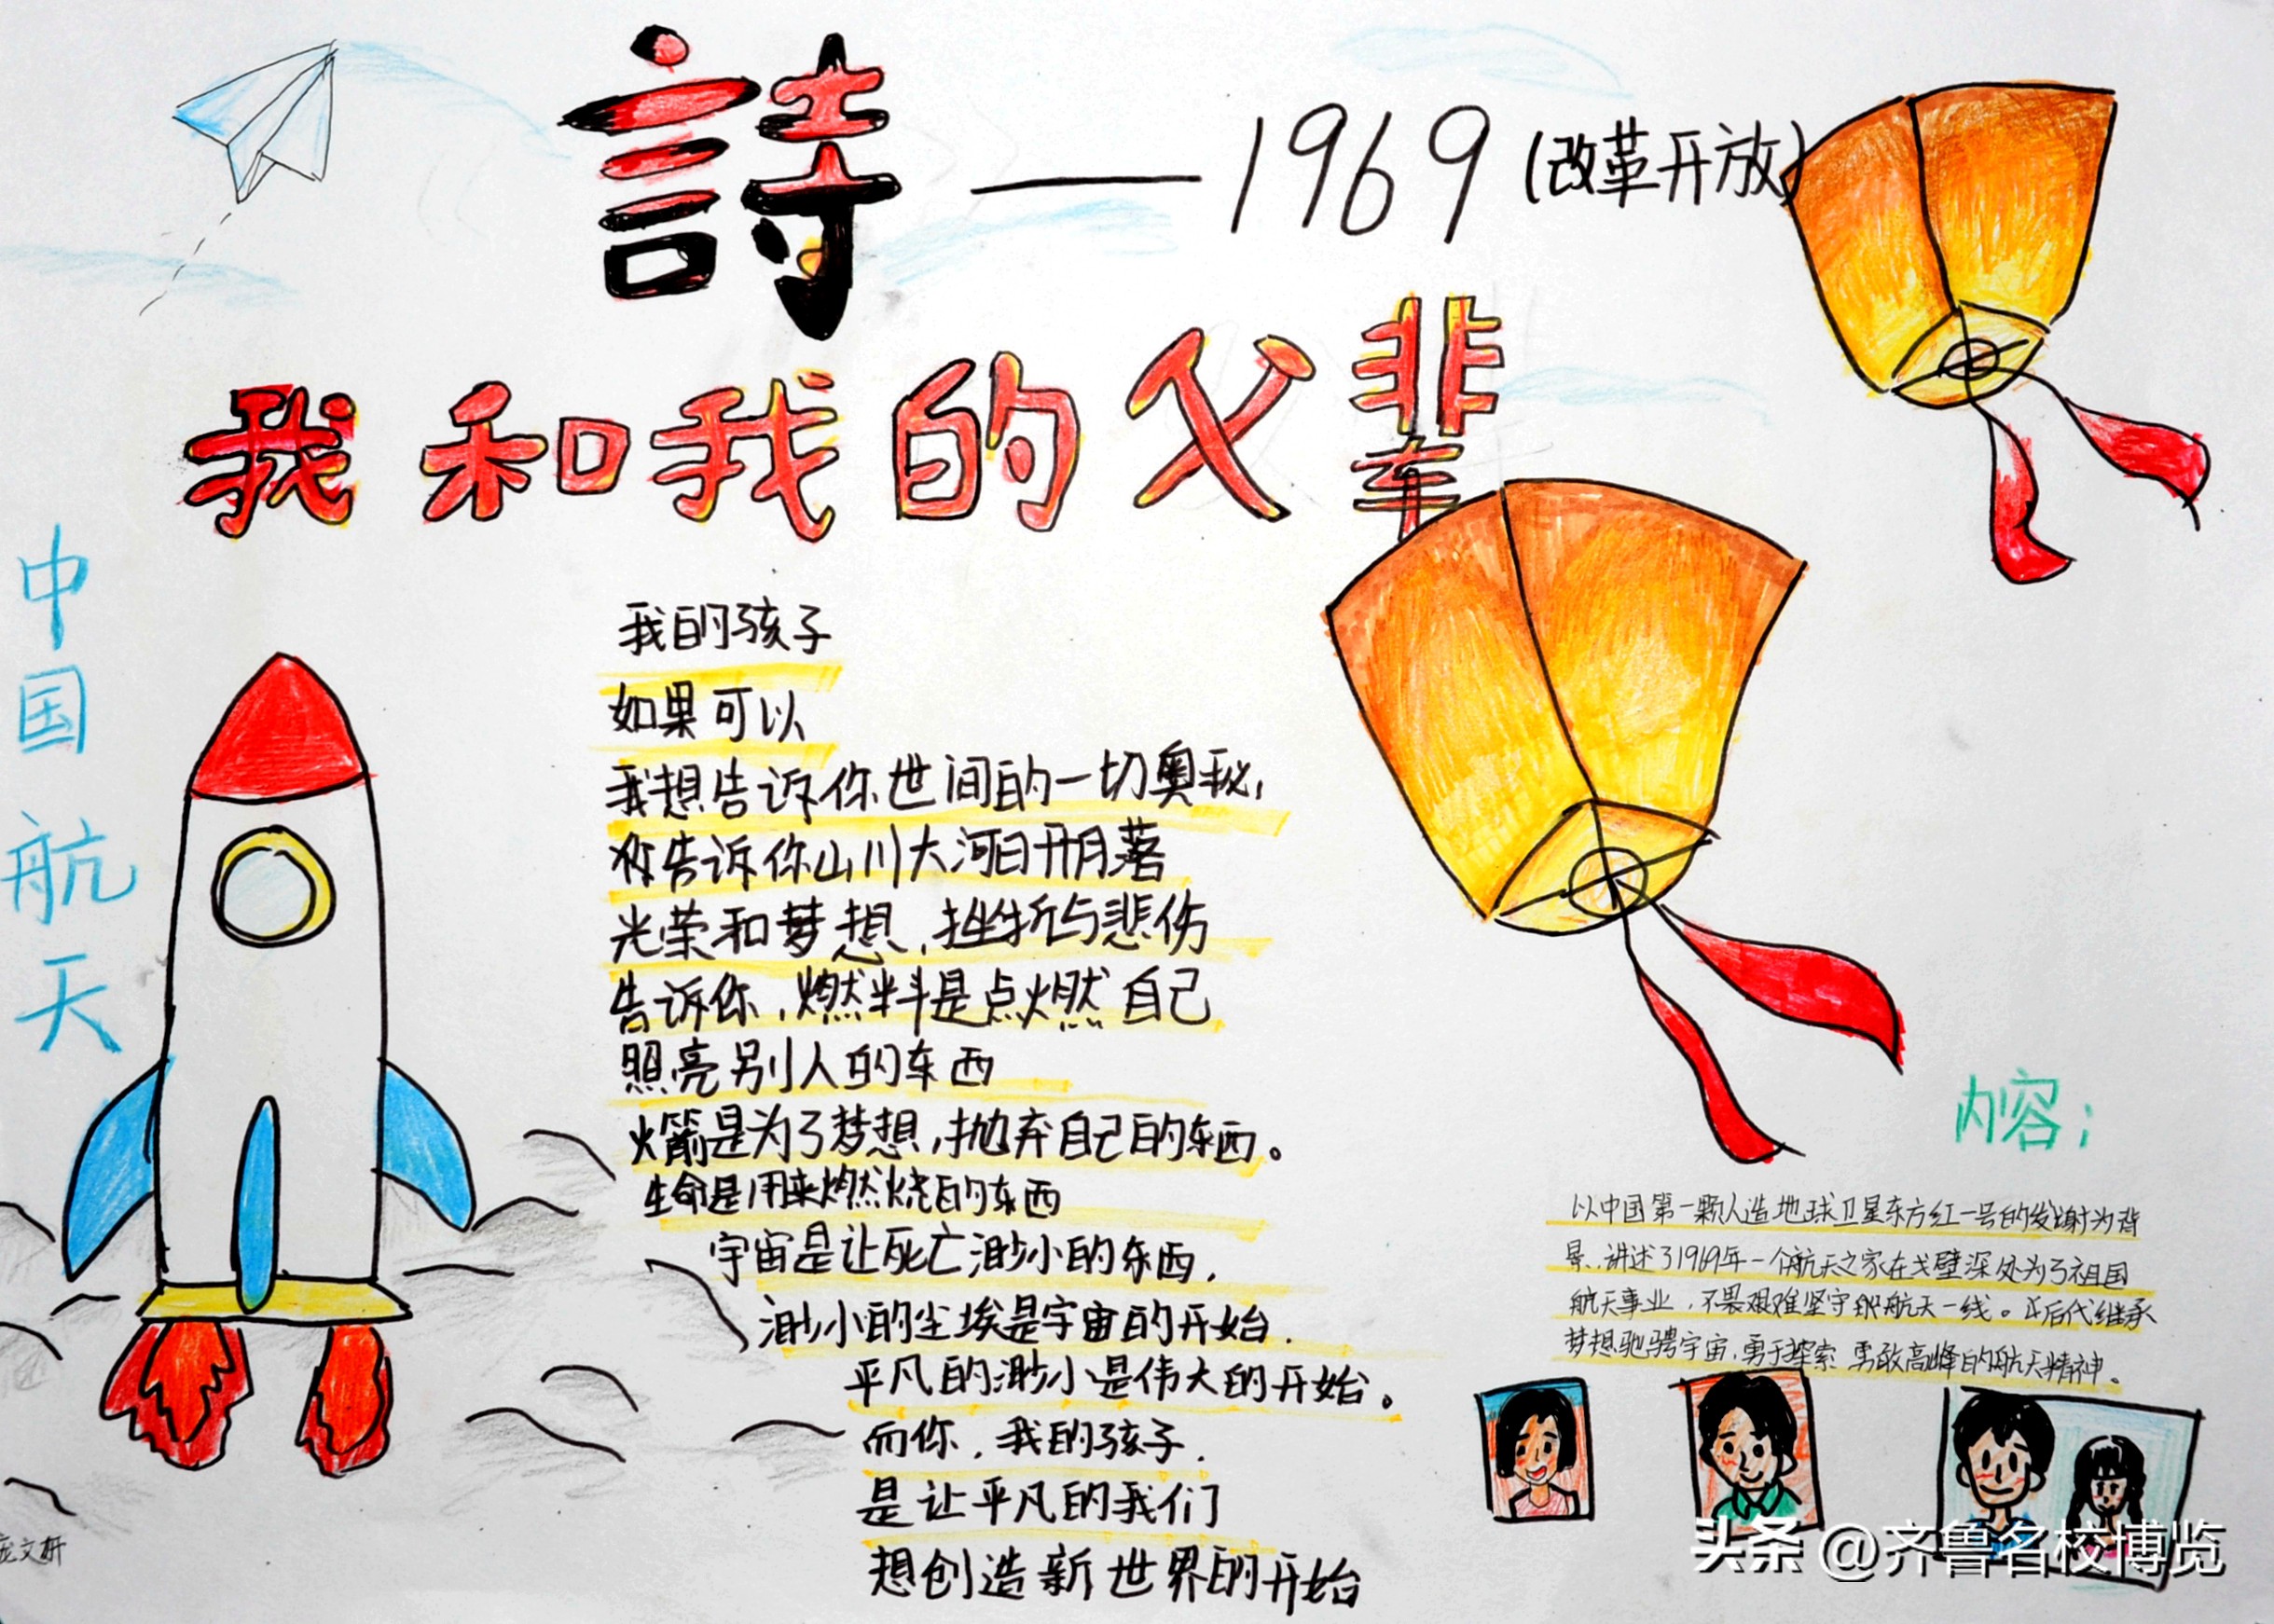 詩——1969(改革开放)
我和我的父辈
中国航天
我的孩子
如果可以
我想告诉你世间的一切奥秘,
告诉你山川大河日升月落
光荣和梦想,挫折与悲伤
告诉你,燃料是点燃自己
照亮别人的东西
火箭是为了梦想,抛弃自己的东西。
生命是用来燃烧的东西
宇宙是让死亡渺小的东西,
渺小的尘埃是宇宙的开始.
平凡的渺小是伟大的开始。
而你,我的孩子.
是让平凡的我们
想创造新世界的开始
内容:
以中国第一颗人造地球卫星东方红一号的发射为背
景、讲述了1969年一个航天之家在戈壁深处为了祖国
航天事业,不畏艰难坚守航天一线。后代继承
梦想驰骋宇宙,勇于探索 勇敢高峰的航天精神。
文轩
头条 @齐鲁名校博览